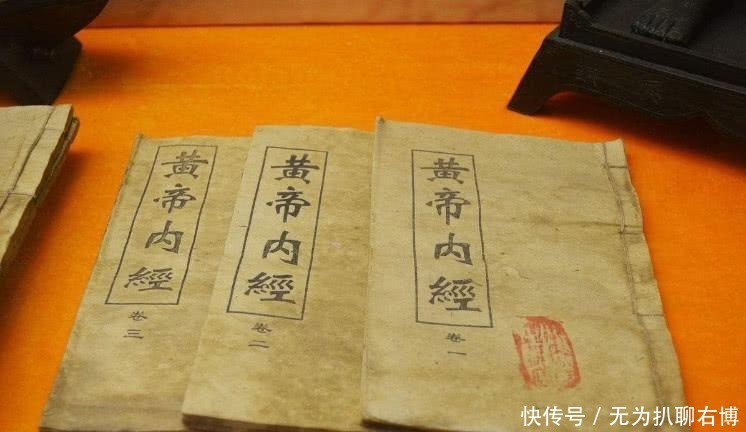 黃帝内經
卷一
黃帝内經
卷二
黃帝内經
卷三
快传号 / 无为扒聊右博